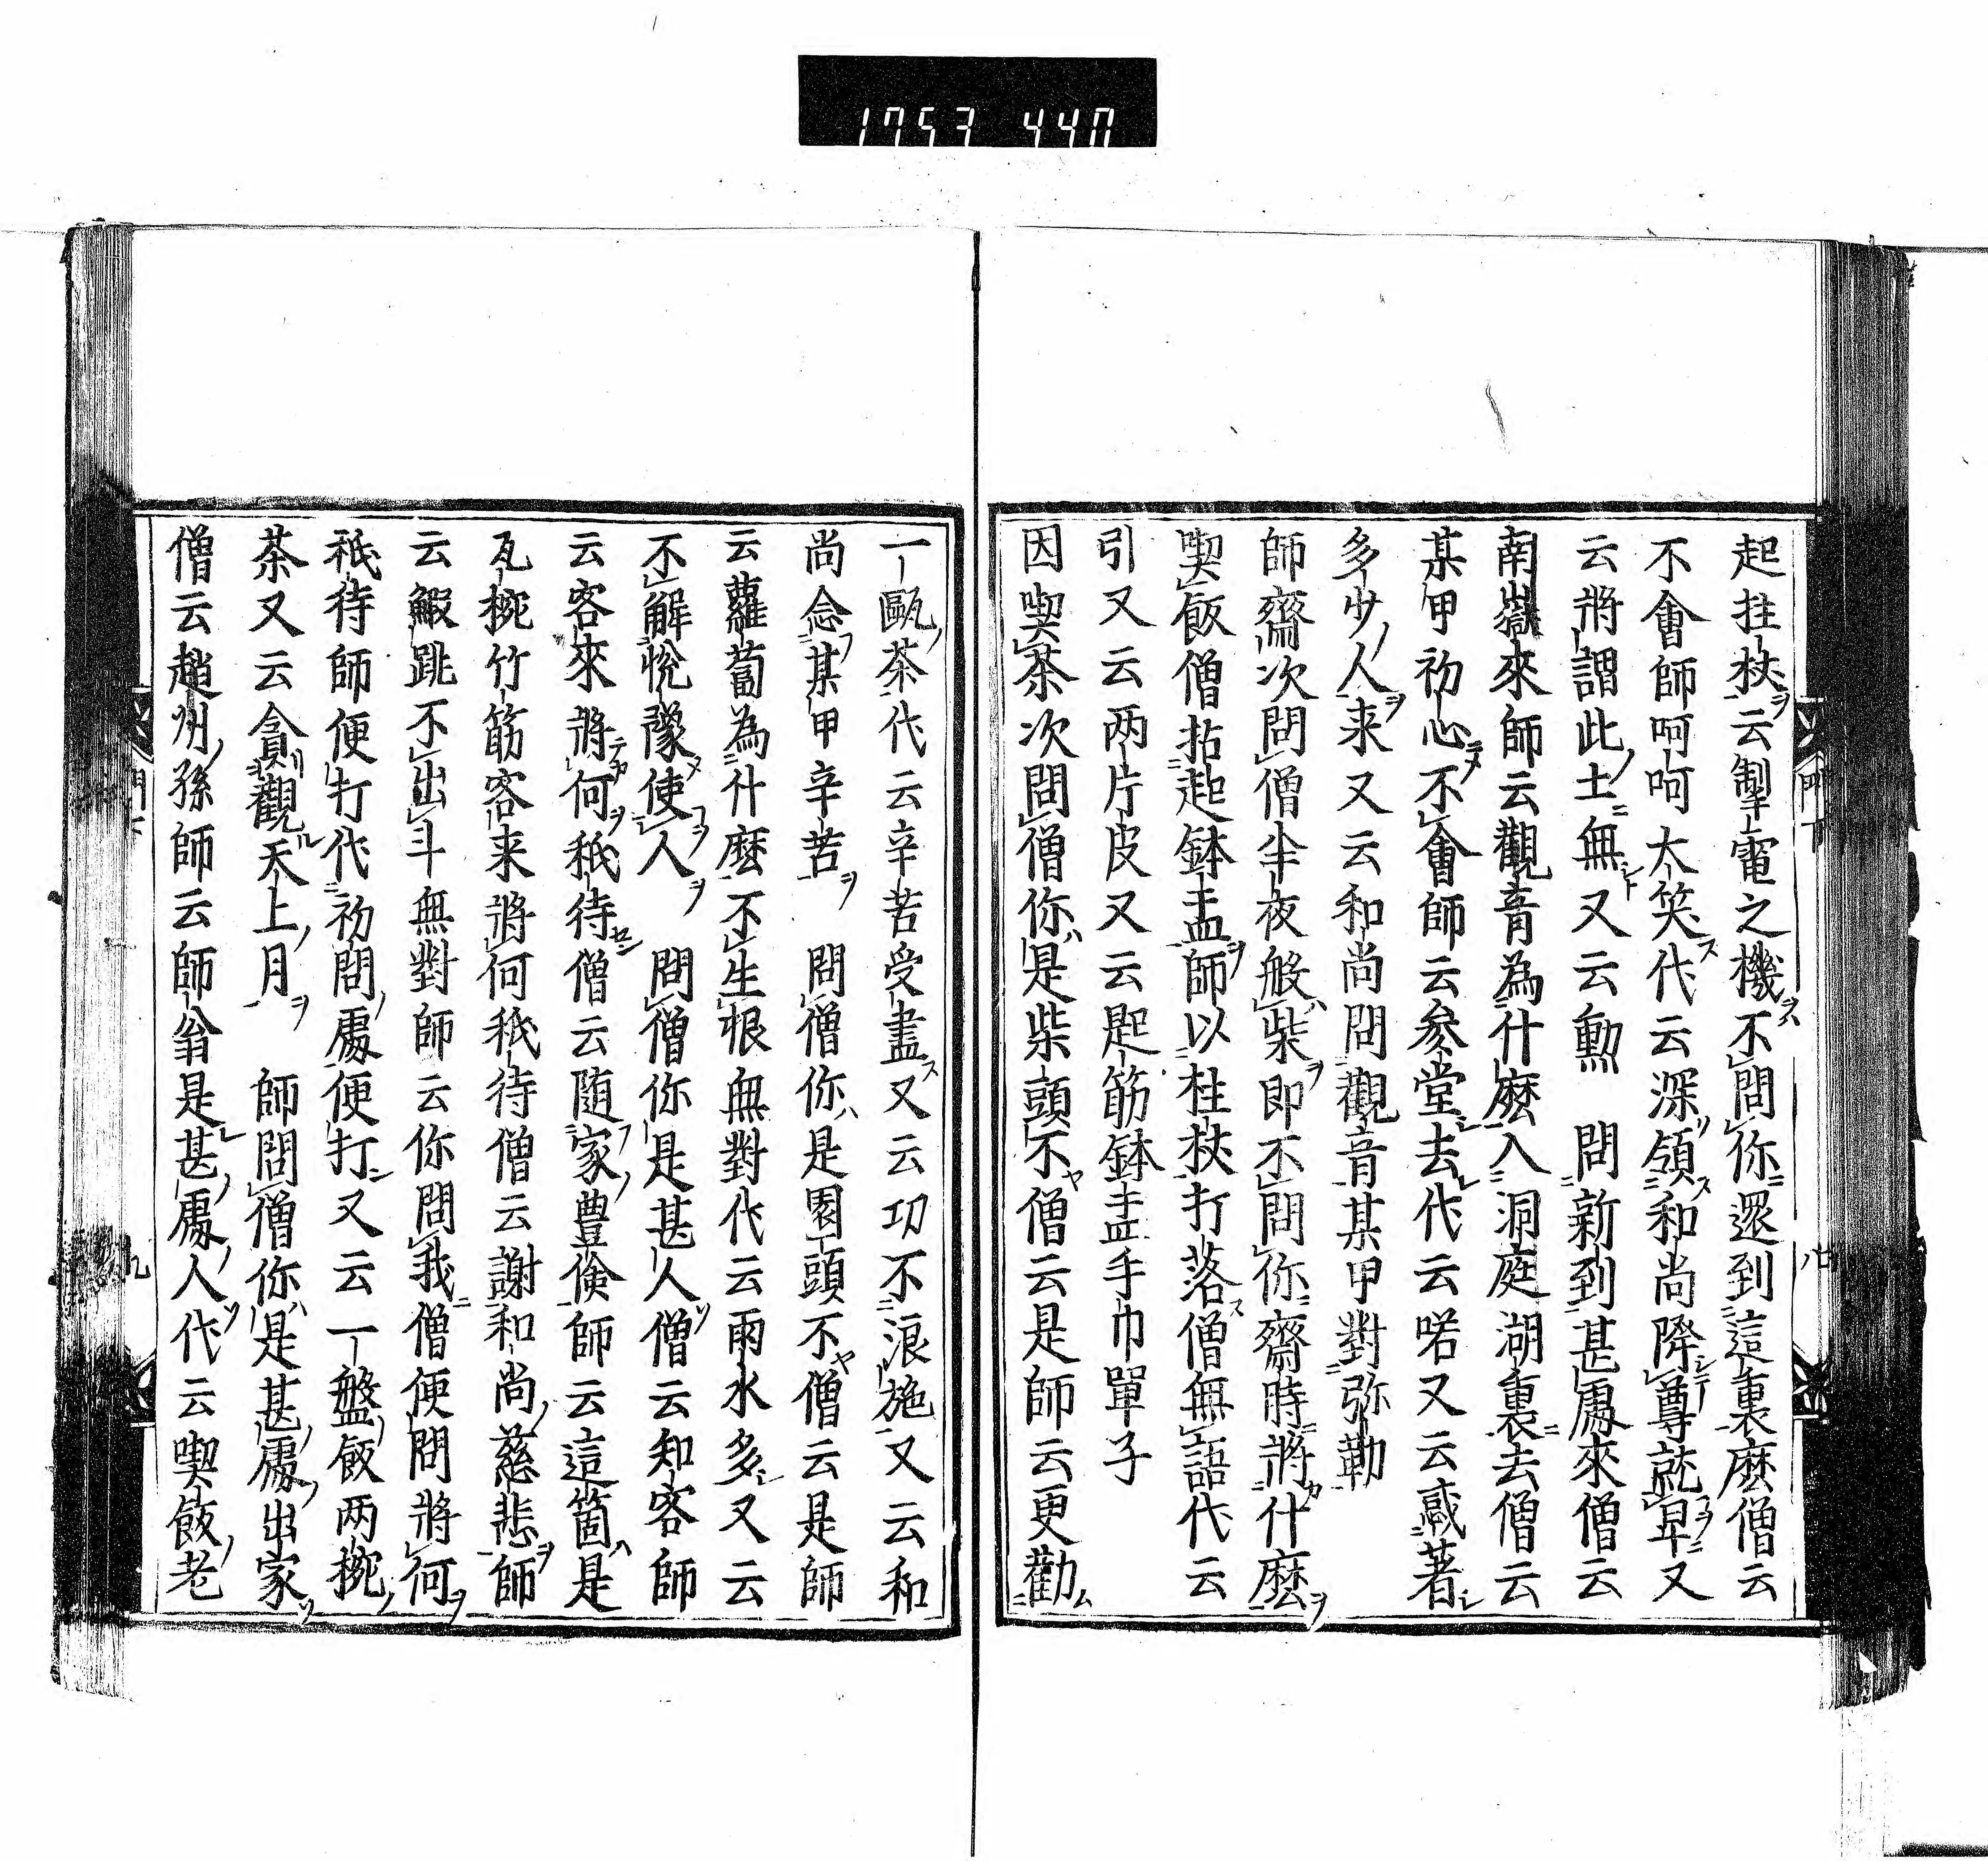 1753 440
起拄杖云掣電之機不問你還到這裏麽僧云
不會師呵呵大笑代云深領和尚降尊就卑又
云將謂此土無又云勲　問新到甚處來僧云
南嶽來師云觀音為什麽入洞庭湖裏去僧云
某甲初心不會師云参堂去代云喏又云感著
多少人来又云和尚問觀音某甲對弥勒
師齋次問僧半夜般柴即不問你齋時將什麽
喫飯僧拈起鉢盂師以柱杖打落僧無語代云
引又云两片皮又云匙筯鉢盂手巾單子
因喫茶次問僧你是柴頭不僧云是師云更勸
一甌茶代云辛苦受盡又云功不浪施又云和
尚念某甲辛苦　問僧你是園頭不僧云是師
云蘿蔔為什麽不生根無對代云雨水多又云
不解悅豫使人　問僧你是甚人僧云知客師
云客來將何祇待僧云随家豊儉師云這箇是
瓦椀竹筯客来將何祇待僧云謝和尚慈悲師
云鰕跳不出斗無對師云你問我僧便問將何
祇待師便打代初問處便打又云一盤飯两椀
茶又云貪觀天上月　師問僧你是甚處出家
僧云趙州孫師云師翁是甚處人代云喫飯老